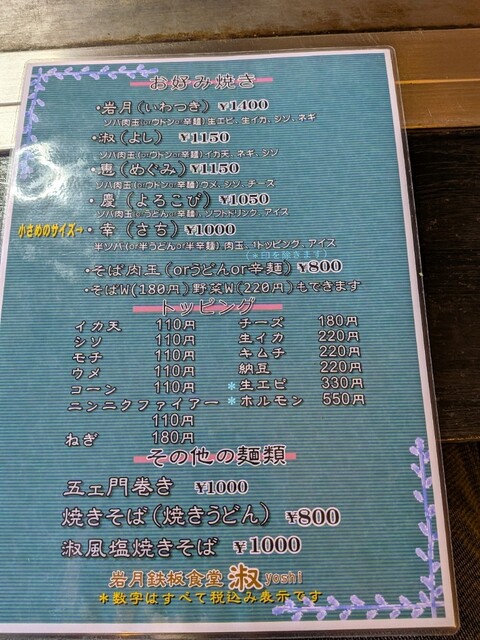 お好み焼き
・岩月(いわつき) ¥1400
ソバ肉玉(orウドンor辛麺)生エビ、生イカ、シソ、ネギ
・淑(よし) ¥1150
ソバ肉玉(orウドンor辛麺)イカ天、ネギ、シソ
・恵(めぐみ) ¥1150
ソバ肉玉(orウドンor辛麺)ウメ、シソ、チーズ
・慶(よろこび) ¥1050
ソバ肉玉(orうどんor辛麺)、ソフトドリンク、アイス
小さめのサイズ→・幸(さち) ¥1000
半ソバ(or半うどんor半辛麺)、肉玉、1トッピング、アイス
(*印を除きます)
・そば肉玉(orうどんor辛麺) ¥800
・そばW(180円)野菜W(220円)もできます
トッピング
イカ天 110円 チーズ 180円
シソ 110円 生イカ 220円
モチ 110円 キムチ 220円
ウメ 110円 納豆 220円
コーン 110円 *生エビ 330円
ニンニクファイアー *ホルモン 550円
110円
ねぎ 180円
その他の麺類
五エ門巻き ¥1000
焼きそば(焼きうどん) ¥800
淑風塩焼きそば ¥1000
岩月鉄板食堂 淑 yoshi
*数字はすべて税込み表示です